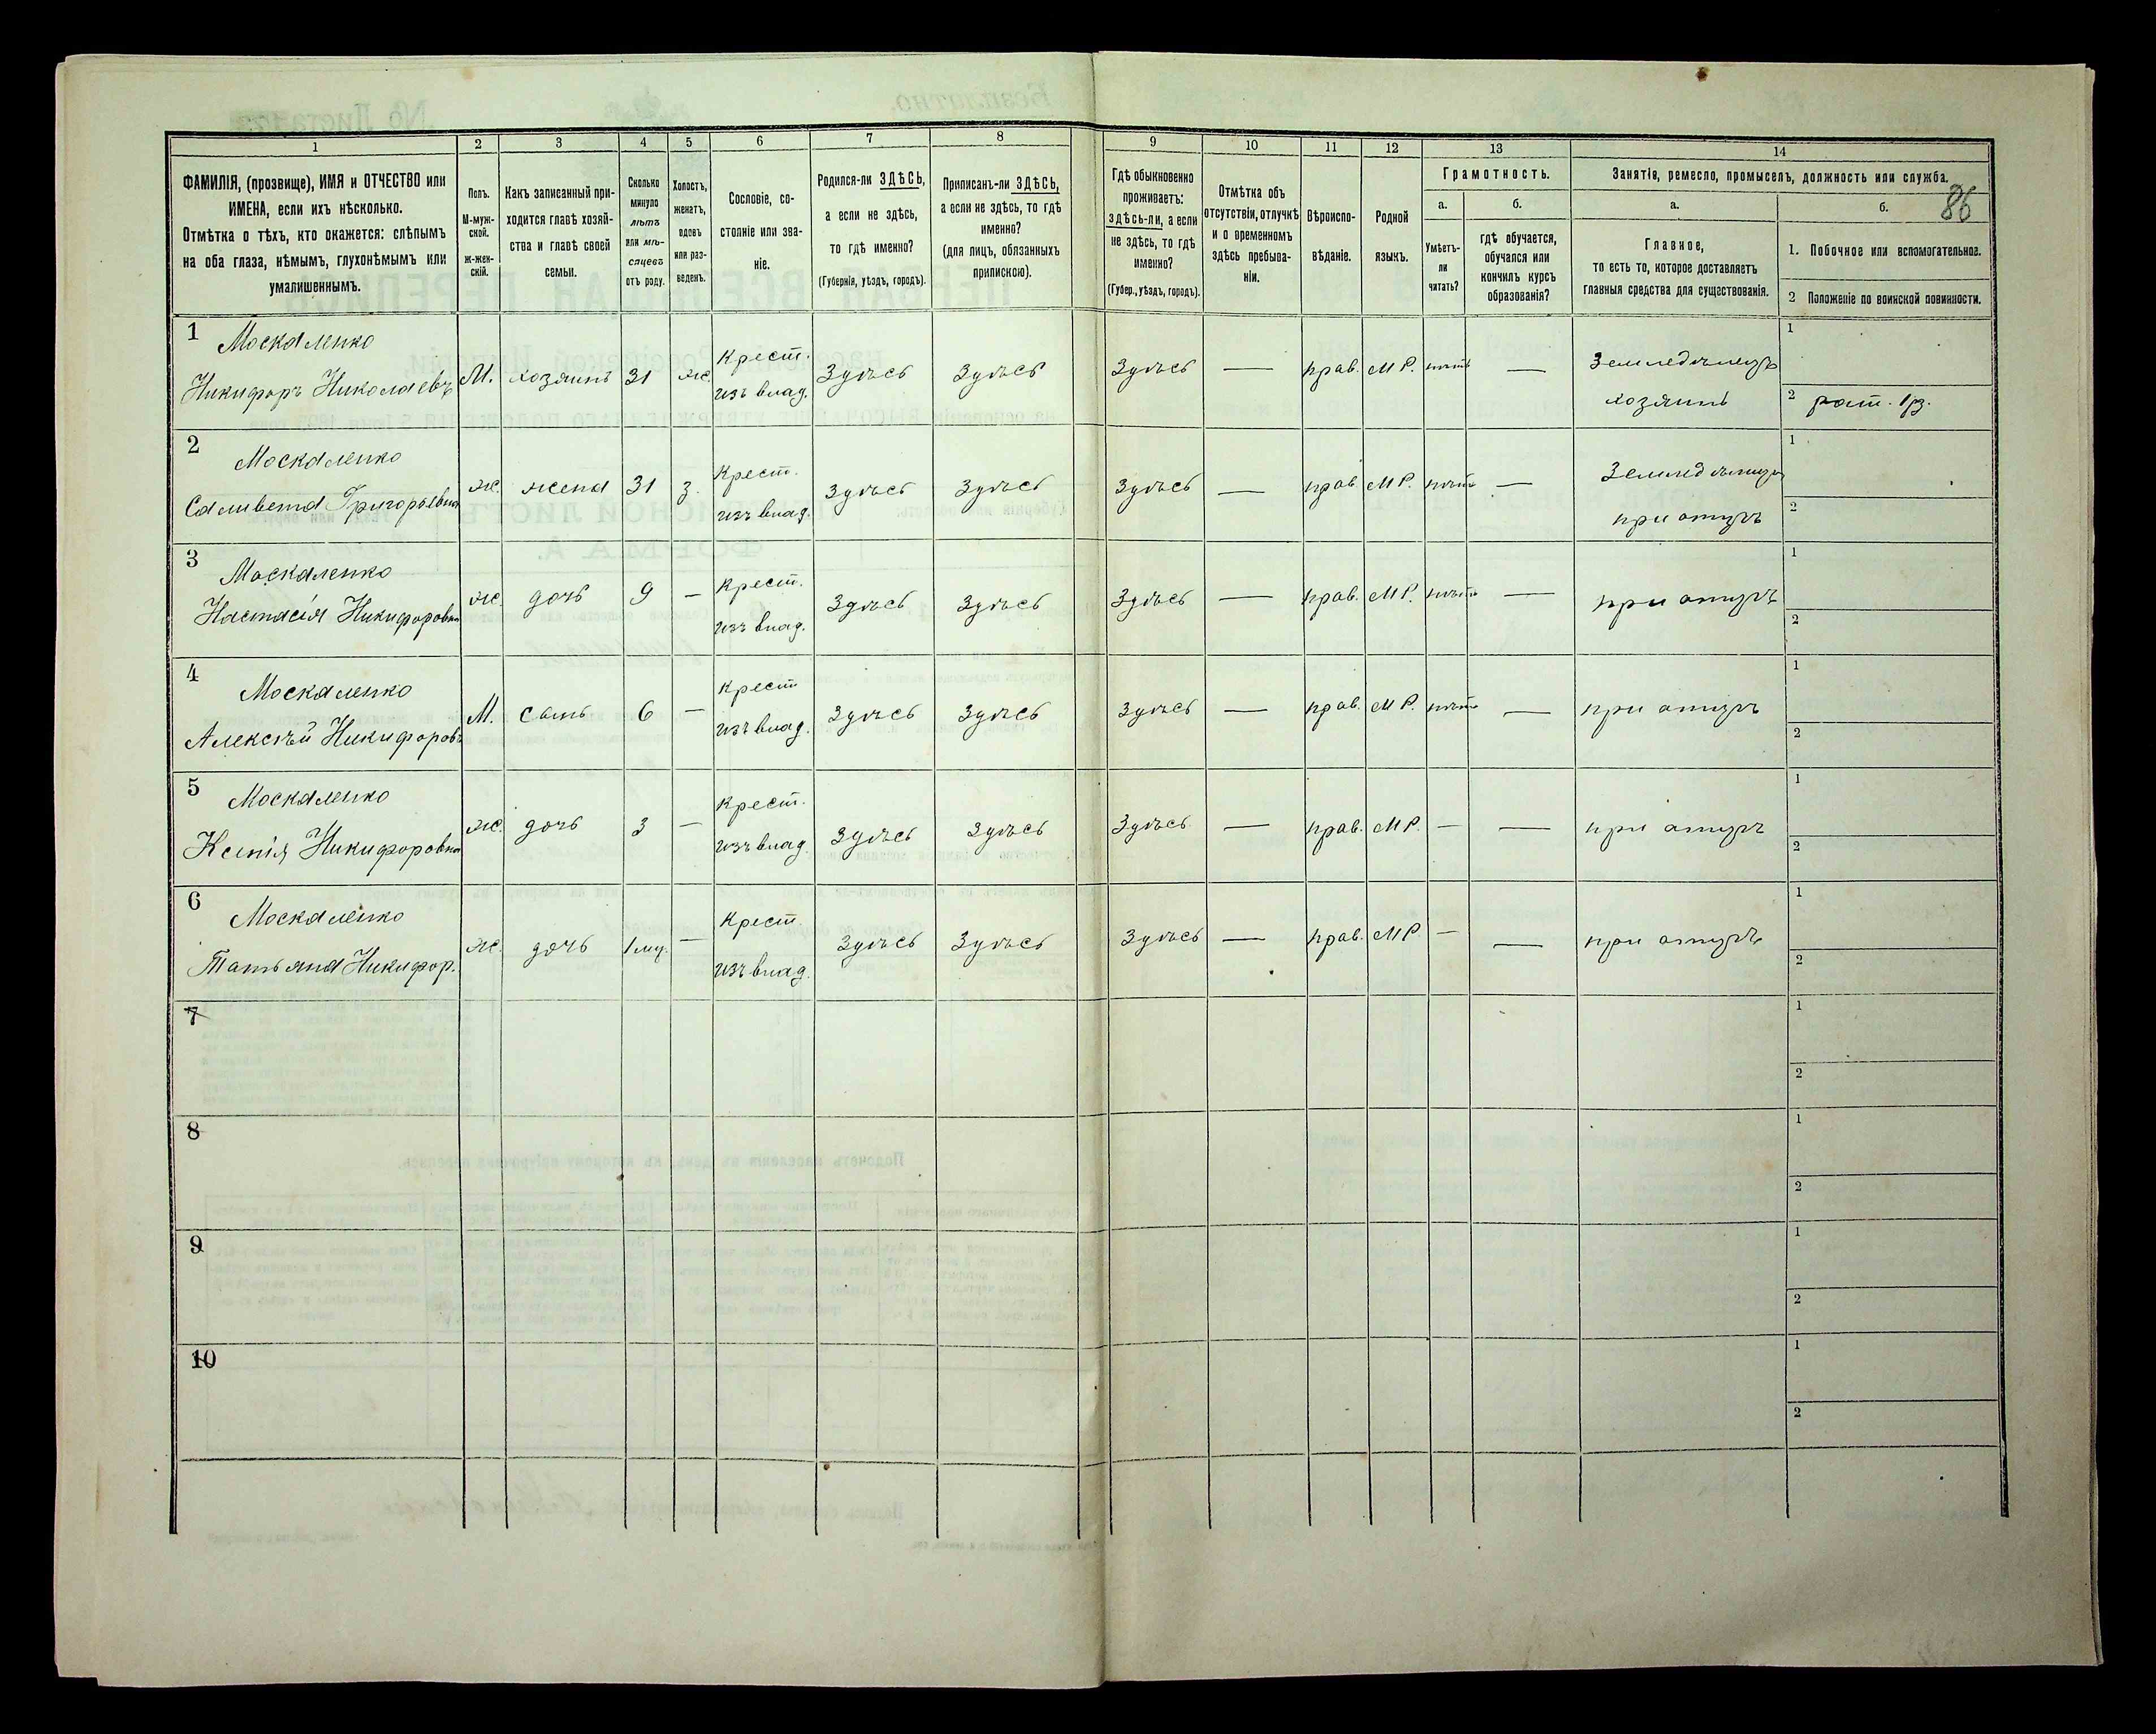 86
1 2 3 4 5 6 7 8 9 10 11 12 13 14
ФАМИЛІЯ, (прозвище), ИМЯ и ОТЧЕСТВО или
ИМЕНА, если ихъ нѣсколько.
Отмѣтка о тѣхъ, кто окажется: слѣпымъ
на оба глаза, нѣмымъ, глухонѣмымъ или
умалишеннымъ.
Полъ.
М-муж-
ской.
Ж-жен-
скій.
Какъ записанный при-
ходится главѣ хозяй-
ства и главѣ своей
семьи.
Сколько
минуло
лѣтъ
или мѣ-
сяцевъ
отъ роду.
Холостъ,
женатъ,
вдовъ
или раз-
веденъ.
Сословіе, со-
стояніе или зва-
ніе.
Родился-ли ЗДѢСЬ,
а если не здѣсь,
то гдѣ именно?
(Губернія, уѣздъ, городъ).
Приписанъ-ли ЗДѢСЬ,
а если не здѣсь, то гдѣ
именно?
(для лицъ, обязанныхъ
припискою).
Гдѣ обыкновенно
проживаетъ:
здѣсь-ли, а если
не здѣсь, то гдѣ
именно?
(Губер., уѣздъ, городъ).
Отмѣтка объ
отсутствіи, отлучкѣ
и о временномъ
здѣсь пребыва-
ніи.
Вѣроиспо-
вѣданіе.
Родной
языкъ.
Грамотность.
а.
Умѣетъ-
ли
читать?
б.
гдѣ обучается,
обучался или
кончилъ курсъ
образованія?
Занятіе, ремесло, промыселъ, должность или служба.
а.
Главное,
то есть то, которое доставляетъ
главныя средства для существованія.
б.
1. Побочное или вспомогательное.
2 Положеніе по воинской повинности.
1 Москаленко
Никифоръ Николаевъ М. хозяинъ 31 ж. Крест. изъ влад. Здѣсь Здѣсь Здѣсь — прав. М Р. нѣтъ — Земледѣлецъ хозяинъ 1
2 рат. 1 р.
2 Москаленко
Саливета Григорьевна ж. жена 31 з. Крест. изъ влад. Здѣсь Здѣсь Здѣсь — прав М Р. нѣтъ — при отцѣ 1
2
3 Москаленко
Настасія Никифоровна ж. дочь 9 — Крест. изъ влад. Здѣсь Здѣсь Здѣсь — прав. М Р. нѣтъ — при отцѣ 1
2
4 Москаленко
Алексѣй Никифоровъ М. сынъ 6 — Крест изъ влад. Здѣсь Здѣсь Здѣсь — прав. М Р. нѣтъ — при отцѣ 1
2
5 Москаленко
Ксенія Никифоровна ж. дочь 3 — Крест. изъ влад. Здѣсь Здѣсь Здѣсь — прав. М Р. — — при отцѣ 1
2
6 Москаленко
Татьяна Никифор. ж. дочь 1 мц. — Крест. изъ влад. Здѣсь Здѣсь Здѣсь — прав. М Р — — при отцѣ 1
2
7 1
2
8 1
2
9 1
2
10 1
2